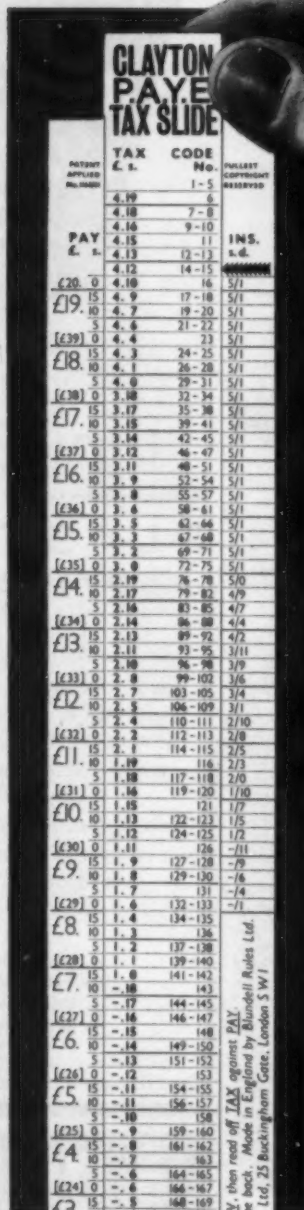 CLAYTON
P.A.Y.E
TAX SLIDE
PATENT APPLIED
FULLEST COPYRIGHT RESERVED
TAX CODE
£. s. No.
1-5
4.19 6
4.18 7-8
4.16 9-10
PAY 4.15 11 INS.
£. s. 4.13 12-13 s.d.
4.12 14-15
£20. 0 4.10 16 5/1
15 4. 9 17-18 5/1
£19. 10 4. 7 19-20 5/1
5 4. 6 21-22 5/1
[£39] 0 4. 4 23 5/1
15 4. 3 24-25 5/1
£18. 10 4. 1 26-28 5/1
5 4. 0 29-31 5/1
[£38] 0 3.18 32-34 5/1
15 3.17 35-38 5/1
£17. 10 3.15 39-41 5/1
5 3.14 42-45 5/1
[£37] 0 3.12 46-47 5/1
15 3.11 48-51 5/1
£16. 10 3. 9 52-54 5/1
5 3. 8 55-57 5/1
[£36] 0 3. 6 58-61 5/1
15 3. 5 62-66 5/1
£15. 10 3. 3 67-68 5/1
5 3. 2 69-71 5/1
[£35] 0 3. 0 72-75 5/1
15 2.19 76-78 5/0
£14. 10 2.17 79-82 4/9
5 2.16 83-85 4/7
[£34] 0 2.14 86-88 4/4
15 2.13 89-92 4/2
£13. 10 2.11 93-95 3/11
5 2.10 96-98 3/9
[£33] 0 2. 8 99-102 3/6
15 2. 7 103-105 3/4
£12. 10 2. 5 106-109 3/1
5 2. 4 110-111 2/10
[£32] 0 2. 2 112-113 2/8
15 2. 1 114-115 2/5
£11. 10 1.19 116 2/3
5 1.18 117-118 2/0
[£31] 0 1.16 119-120 1/10
15 1.15 121 1/7
£10. 10 1.13 122-123 1/5
5 1.12 124-125 1/2
[£30] 0 1.11 126 -/11
15 1. 9 127-128 -/9
£9. 10 1. 8 129-130 -/6
5 1. 7 131 -/4
[£29] 0 1. 6 132-133 -/1
15 1. 4 134-135
£8. 10 1. 3 136
5 1. 2 137-138
[£28] 0 1. 1 139-140
15 1. 0 141-142
£7. 10 -.18 143
5 -.17 144-145
[£27] 0 -.16 146-147
15 -.15 148
£6. 10 -.14 149-150
5 -.13 151-152
[£26] 0 -.12 153
15 -.11 154-155
£5. 10 -.11 156-157
5 -.10 158
[£25] 0 -. 9 159-160
15 -. 8 161-162
£4. 10 -. 7 163
5 -. 6 164-165
[£24] 0 -. 6 166-167
£3. 15 -. 5 168-169
then read off TAX against PAY.
back. Made in England by Blundell Rules Ltd.
Ltd, 25 Buckingham Gate, London S W I